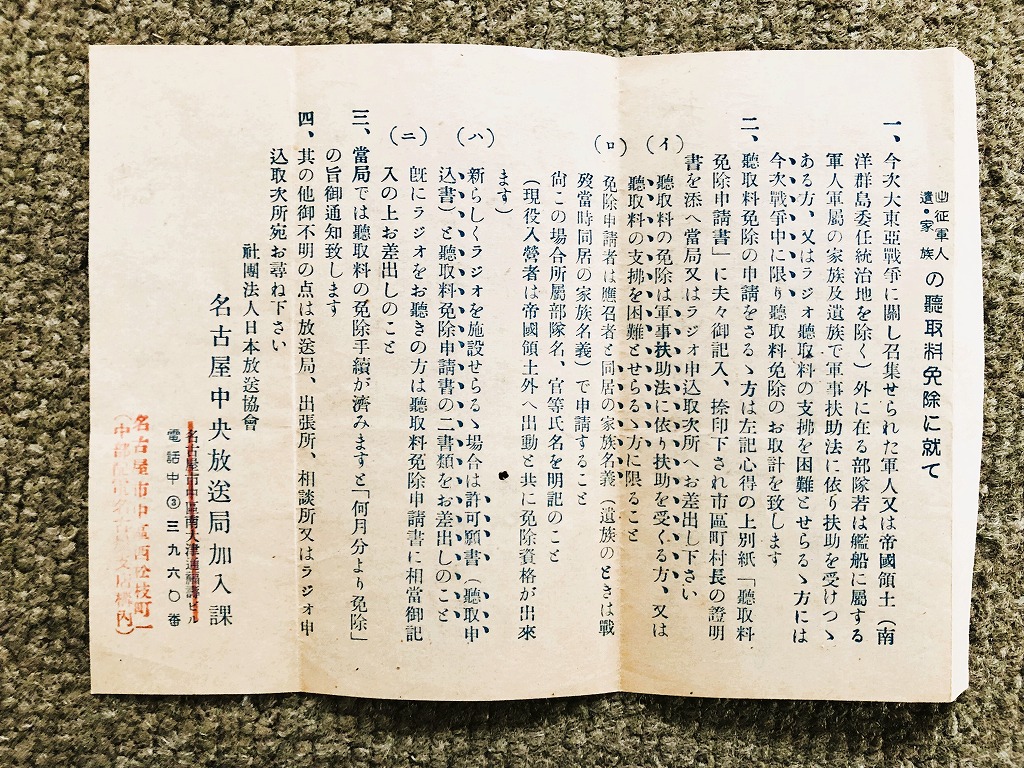 出征軍人
遺・家族 の聽取料免除に就て
一、今次大東亞戰爭に關し召集せられた軍人又は帝國領土（南
洋群島委任統治地を除く）外に在る部隊若は艦船に屬する
軍人軍屬の家族及遺族で軍事扶助法に依り扶助を受けつゝ
ある方、又はラジオ聽取料の支拂を困難とせらるゝ方には
今次戰爭中に限り聽取料免除のお取計を致します
二、聽取料免除の申請をさるゝ方は左記心得の上別紙「聽取料
免除申請書」に夫々御記入、捺印下され市區町村長の證明
書を添へ當局又はラジオ申込取次所へお差出し下さい
（イ）聽取料の免除は軍事扶助法に依り扶助を受くる方、又は
聽取料の支拂を困難とせらるゝ方に限ること
（ロ）免除申請者は應召者と同居の家族名義（遺族のときは戰
歿當時同居の家族名義）で申請すること
尙この場合所屬部隊名、官等氏名を明記のこと
（現役入營者は帝國領土外へ出動と共に免除資格が出來
ます）
（ハ）新らしくラジオを施設せらるゝ場合は許可願書（聽取申
込書）と聽取料免除申請書の二書類をお差出しのこと
（ニ）旣にラジオをお聽きの方は聽取料免除申請書に相當御記
入の上お差出しのこと
三、當局では聽取料の免除手續が濟みますと「何月分より免除」
の旨御通知致します
四、其の他御不明の点は放送局、出張所、相談所又はラジオ申
込取次所宛お尋ね下さい
社團法人日本放送協會
名古屋中央放送局加入課
名古屋市中區南大津通福壽ビル
電話中③三九六〇番
名古屋市中區西松枝町一